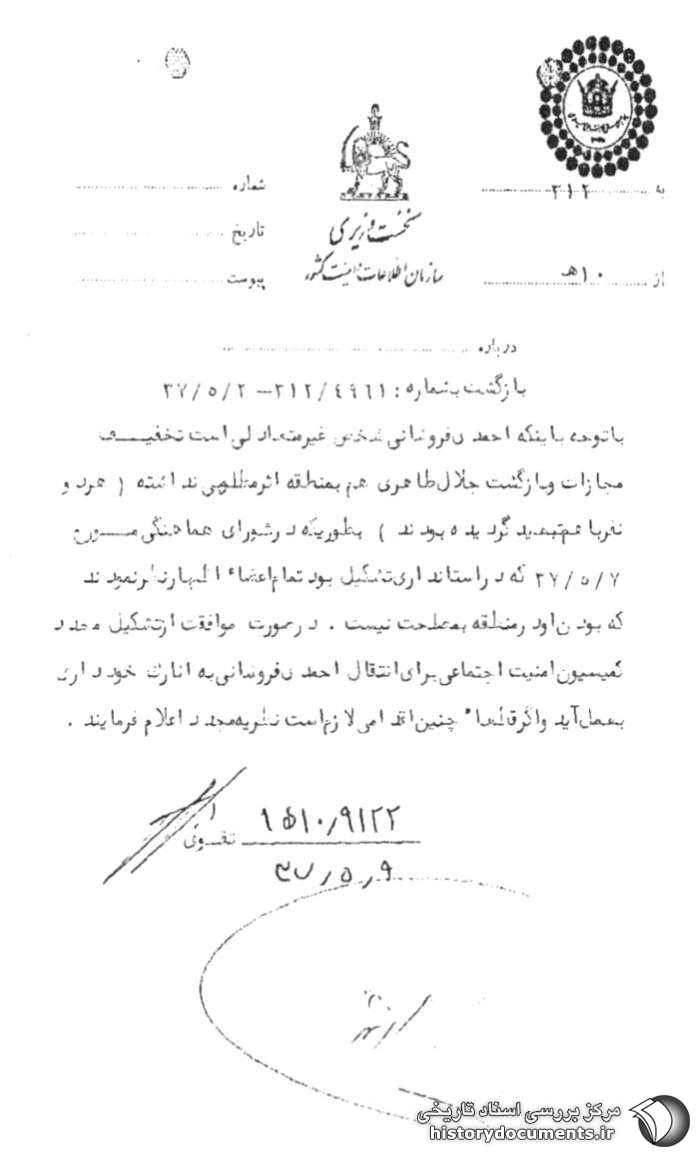 شماره
به ۳۱۲
نخست وزیری
تاریخ
سازمان اطلاعات و امنیت کشور
از ۱۰ه
پیوست
درباره
بازگشت بشماره: ۳۱۲/۴۹۶۱ - ۳۷/۵/۲
باتوجه باینکه احمد فروشانی شخص غیرمتعادلی است تخفیف
مجازات وبازگشت جلال طاهری هم بمنطقه اثرمطلوبی نداشته ( هردو
نفرباهم تبعید گردیده بودند ) بطوریکه درشورای هماهنگی مورخ
۳۷/۵/۷ که دراستانداری تشکیل بود تمام اعضاء اظهارنظرنمودند
که بودن اودرمنطقه بمصلحت نیست . درصورت موافقت ازتشکیل مجدد
کمیسیون امنیت اجتماعی برای انتقال احمد فروشانی به انارک خودداری
بعمل آید واگرقطعاً چنین اقدامی لازم است نظریه مجدد اعلام فرمایند .
۹۱۲۲/۱۰ه۱
تقوی
۳۷/۵/۹
مرکز بررسی اسناد تاریخی
historydocuments.ir